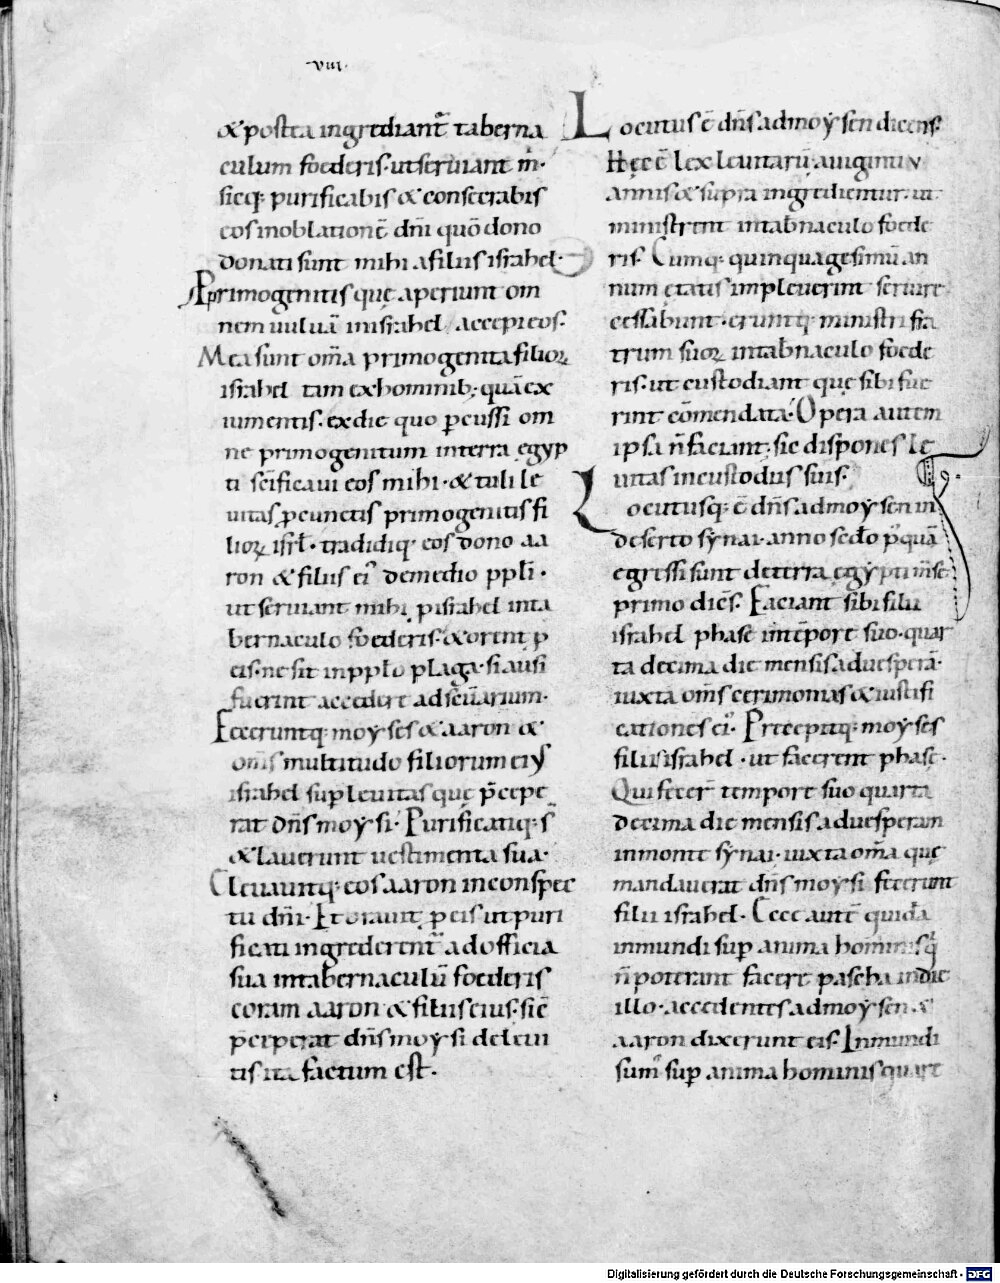 ·viii·
& postea ingrediant̄ taberna
culum foederis· ut seruiant m̅·
sicq: purificabis & consecrabis
eos in oblationē dn̄i quō dono
donati sunt mihi a filiis israhel·
Pro primogenitis quę aperiunt om
nem uuluā in israhel accepi eos·
Mea sunt om̄a primogenita filioꝝ
israhel tam ex hominib; quā ex
iumentis· ex die quo ꝑcussi om
ne primogenitum in terra egyp
ti sc̄ificaui eos mihi· & tuli le
uitas ꝓ cunctis primogenitis fi
lioꝝ isrl̄· tradidiq: eos dono aa
ron & filiis ei' de medio ppl̄i·
ut seruiant mihi p israhel in ta
bernaculo foederis· & orent p
eis· ne sit in ppl̄o plaga· si ausi
fuerint accedere ad sc̄uarium·
Feceruntq: moyses & aaron &
om̄is multitudo filiorum eiꝰ
israhel sup leuitas quę p̄cepe
rat dn̄s moysi· Purificatiq: s̄
& lauerunt uestimenta sua·
Eleuauitq: eos aaron in conspec
tu dn̄i· Et orauit p eis ut puri
ficati ingrederent̄ ad officia
sua in tabernaculū foederis
coram aaron & filiis eius· sic̄
p̄ceperat dn̄s moysi de leui
tis ita factum est·
Locutus ē dn̄s ad moysen dicens·
Hęc ē lex leuitarū a uiginti v
annis & supra ingredientur· ut
ministrent in tab̄naculo foede
ris· Cumq: quinquagesimū an
num ętatis impleuerint seruire
cessabunt· eruntq: ministri fra
trum suoꝝ in tab̄naculo foede
ris· ut custodiant quę sibi fue
rint cōmendata· Opera autem
ipsa n̄ faciant· sic dispones le
uitas in custodiis suis·
Locutusq: ē dn̄s ad moysen in
deserto synai· anno sc̄do p'quā
egressi sunt de terra egypti m̄se
primo dic̄s· Faciant sibi filii
israhel phase in tēpore suo· quar
ta decima die mensis ad uesperā·
iuxta om̄s cerimonias & iustifi
cationes ei'· Precepitq: moyses
filiis israhel· ut facerent phase·
Qui fecer̄ tempore suo quarta
decima die mensis ad uesperam
in monte synai· iuxta om̄a quę
mandauerat dn̄s moysi fecerunt
filii israhel· Ecce autē quidā
inmundi sup anima hominis q'
n̄ poterant facere pascha in die
illo· accedentes ad moysen &
aaron dixerunt eis· Inmundi
sum' sup anima hominis quare
Digitalisierung gefördert durch die Deutsche Forschungsgemeinschaft - DFG